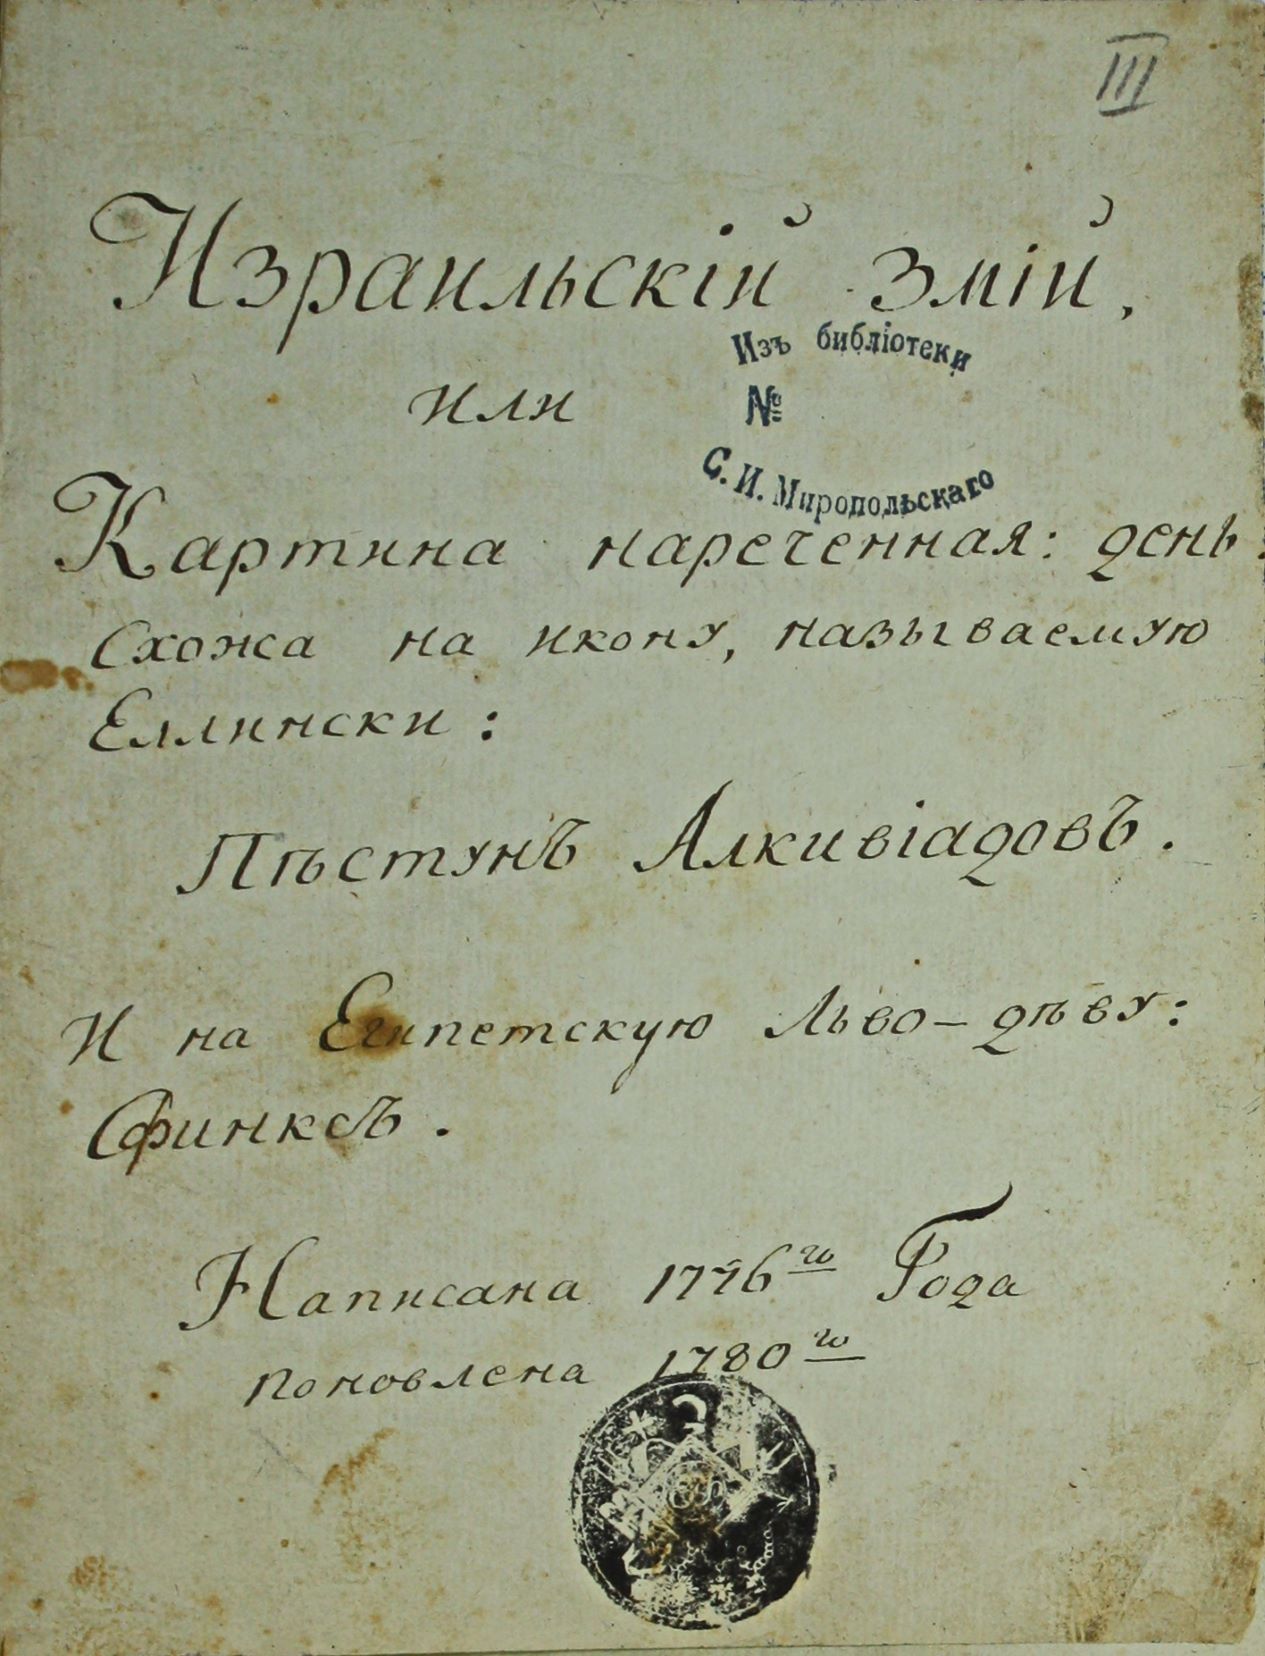 III
Израильскій змій,
Изъ библіотеки
или
№
С. И. Миропольскаго
Картина нареченная: день:
Схожа на икону, называемую
Еллински:
Пѣстунъ Алкивіадовъ.
И на Египетскую Льво-дѣву:
Сфинксъ.
Написана 1776го Года
поновлена 1780го